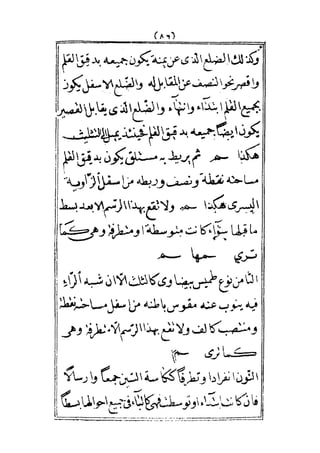 (٨٦)
وكذلك الضلع الذى عن يمنة يكون جميعه بدقيق القلم
واقصر نحو النصف عن المقابل له والضلع الاسفل يكون
بجميع القلم ابتداء وانتهاء والضلع الذى يقابل القصير
يكون ايضا جميعه بدقيق القلم فحينئذ يحصل التثليث
هكذا ثم يربط به مستلق يكون بدقيق القلم
مساحته نقطة ونصف وربطه من اسفل الزاوية
اليسرى هكذا ولا تقع بهذا الرسم الا بعد بسط
ما قبلها سواء كانت متوسطة او متطرفة وهى كما
ترى سمها
الثامن نوع طميس بيضاوى كالثالث الا ان شبه الراء
فيه ينوب عنه مقوس باطنه من اسفل مساحته نقطة
ومنتصب كالف ولا تقع بهذا الرسم الا متطرفة وهى
كما ترى
النون انفرادا وتطرفا ككاسة السين جمعا وارسالا
فان كانت ابتداء او توسطت فهى كالباء فى جميع احوالها بسطا